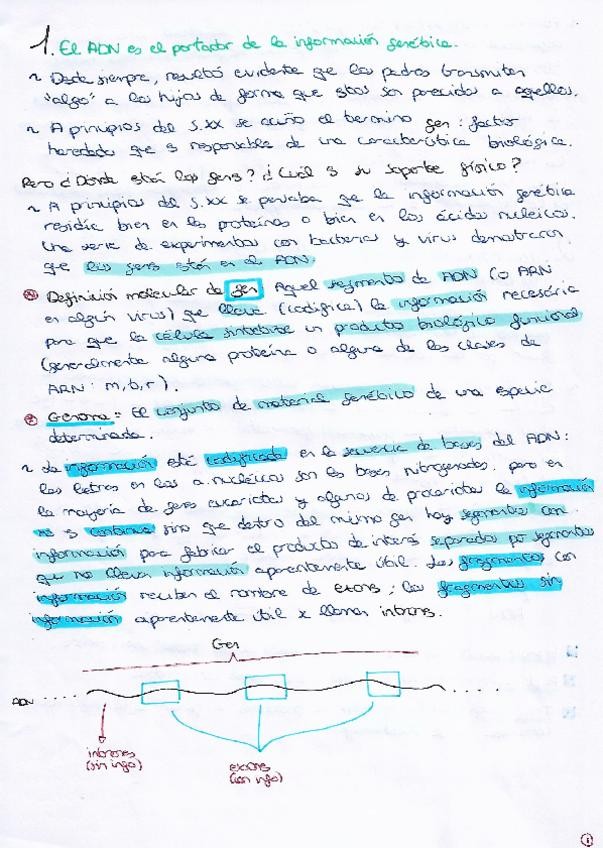 1. El ADN es el portador de la información genética.
~ Desde siempre, resultó evidente que los padres transmiten
"algo" a los hijos de forma que estos son parecidos a aquellos.
~ A principios del S.XX se acuñó el termino gen: factor
heredado que es responsable de una característica biológica.
Pero ¿Dónde están los genes? ¿Cuál es su soporte físico?
~ A principios del S.XX se pensaba que la información genética
residía bien en las proteínas o bien en los ácidos nucleicos.
Una serie de experimentos con bacterias y virus demostraron
que los genes están en el ADN.
Definición molecular de gen Aquel segmento de ADN (o ARN
en algún virus) que lleva (codifica) la información necesaria
para que la célula sintetice un producto biológico funcional
(generalmente alguna proteína o alguna de las clases de
ARN: m, t, r).
Genoma: El conjunto de material genético de una especie
determinada.
~ La información está codificada en la secuencia de bases del ADN:
las letras en los a. nucleicos son las bases nitrogenadas. pero en
la mayoría de genes eucariotas y algunos de procariotas la información
no es continua sino que dentro del mismo gen hay segmentos con
información para fabricar el producto de interés separados por segmentos
que no llevan información aparentemente útil. Los fragmentos con
información reciben el nombre de exones; los fragmentos sin
información aparentemente útil x llaman intrones.
Gen
ADN
intrones
(sin info)
exones
(con info)
1